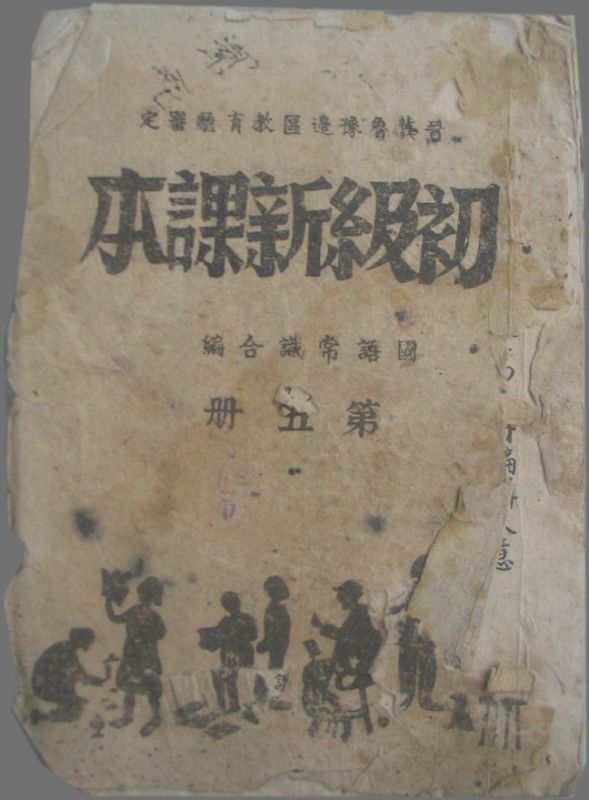 晋冀魯豫邊區教育廳審定
初級新課本
國語常識合編
第五册